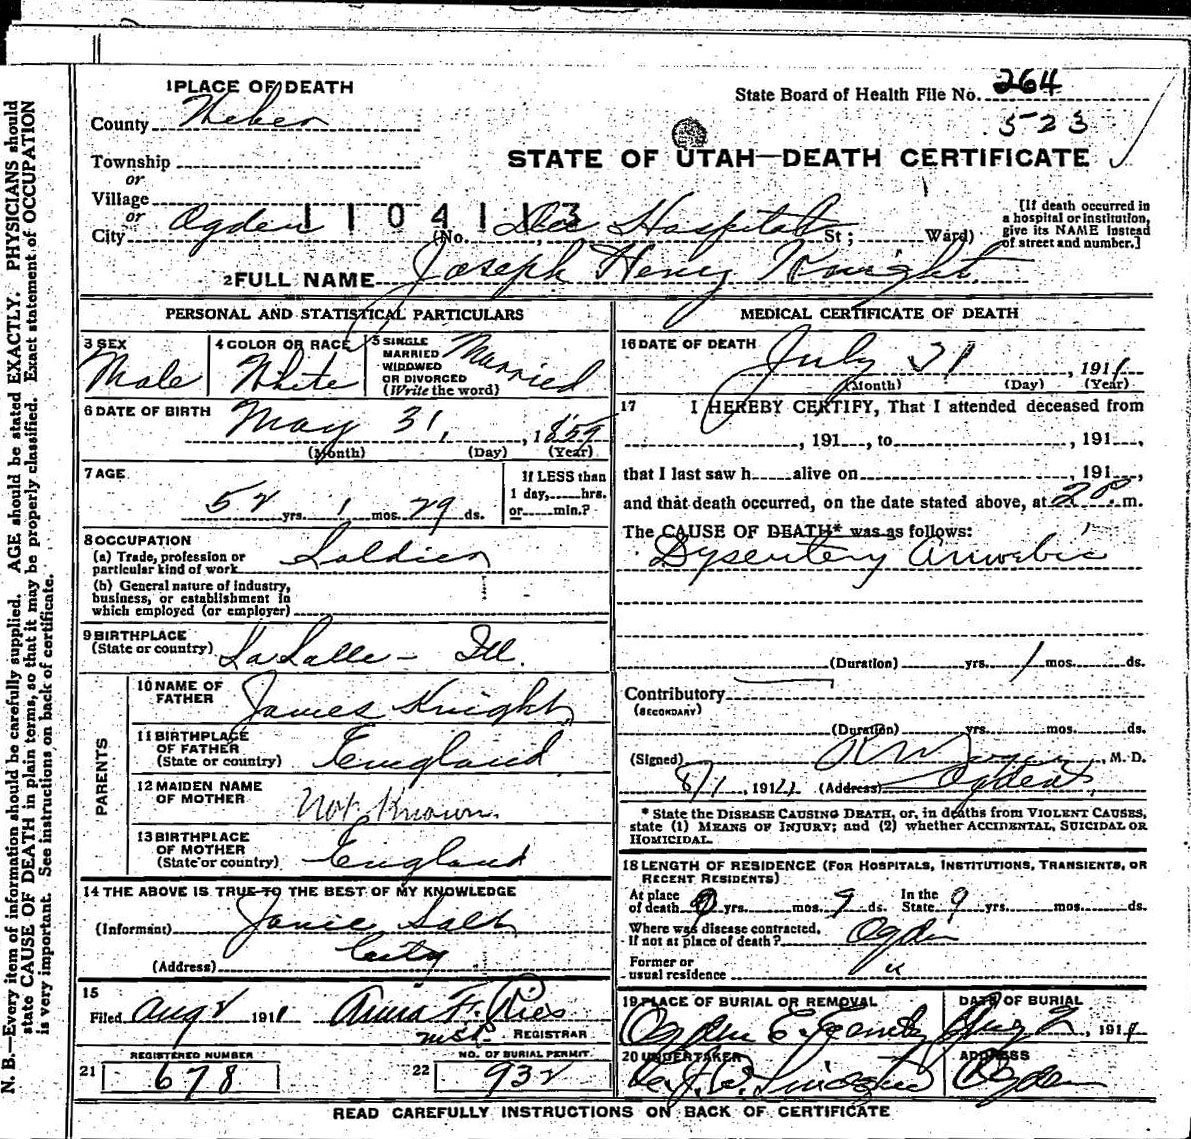 1 PLACE OF DEATH
County Weber
Township
or
Village
or
City Ogden (No. Dee Hospital St; Ward)
1104113
State Board of Health File No. 264
523
STATE OF UTAH—DEATH CERTIFICATE
[If death occurred in
a hospital or institution,
give its NAME instead
of street and number.]
2 FULL NAME Joseph Henry Knight
PERSONAL AND STATISTICAL PARTICULARS
3 SEX
Male
4 COLOR OR RACE
White
5 SINGLE
MARRIED
WIDOWED
OR DIVORCED
(Write the word)
Married
6 DATE OF BIRTH
May 31, 1859
(Month) (Day) (Year)
7 AGE
52 yrs. 1 mos. 29 ds.
If LESS than
1 day, hrs.
or min.?
8 OCCUPATION
(a) Trade, profession or
particular kind of work Soldier
(b) General nature of industry,
business, or establishment in
which employed (or employer)
9 BIRTHPLACE
(State or country) LaSalle - Ill.
PARENTS
10 NAME OF
FATHER James Knight
11 BIRTHPLACE
OF FATHER
(State or country) England
12 MAIDEN NAME
OF MOTHER Not Known.
13 BIRTHPLACE
OF MOTHER
(State or country) England
14 THE ABOVE IS TRUE TO THE BEST OF MY KNOWLEDGE
(Informant) Janie
(Address) City
15
Filed Aug 2 1911 Anna F. Ries
REGISTRAR
REGISTERED NUMBER
21 678
NO. OF BURIAL PERMIT
22 932
MEDICAL CERTIFICATE OF DEATH
16 DATE OF DEATH
July 31, 1911
(Month) (Day) (Year)
17 I HEREBY CERTIFY, That I attended deceased from
, 191 , to , 191 ,
that I last saw h alive on , 191 ,
and that death occurred, on the date stated above, at 2 m.
The CAUSE OF DEATH* was as follows:
Dysentery Amoebic
(Duration) yrs. 1 mos. ds.
Contributory
(SECONDARY)
(Duration) yrs. mos. ds.
(Signed) , M. D.
8/1, 1911 (Address) Ogden
* State the DISEASE CAUSING DEATH, or, in deaths from VIOLENT CAUSES,
state (1) MEANS OF INJURY; and (2) whether ACCIDENTAL, SUICIDAL OR
HOMICIDAL.
18 LENGTH OF RESIDENCE (FOR HOSPITALS, INSTITUTIONS, TRANSIENTS, OR
RECENT RESIDENTS)
At place In the
of death yrs. mos. 9 ds. State 9 yrs. mos. ds.
Where was disease contracted,
If not at place of death? Ogden
Former or
usual residence "
19 PLACE OF BURIAL OR REMOVAL
Ogden
DATE OF BURIAL
Aug 2, 1911
20 UNDERTAKER
ADDRESS
Ogden
READ CAREFULLY INSTRUCTIONS ON BACK OF CERTIFICATE
N. B.—Every item of information should be carefully supplied. AGE should be stated EXACTLY. PHYSICIANS should
state CAUSE OF DEATH in plain terms, so that it may be properly classified. Exact statement of OCCUPATION
is very important. See instructions on back of certificate.